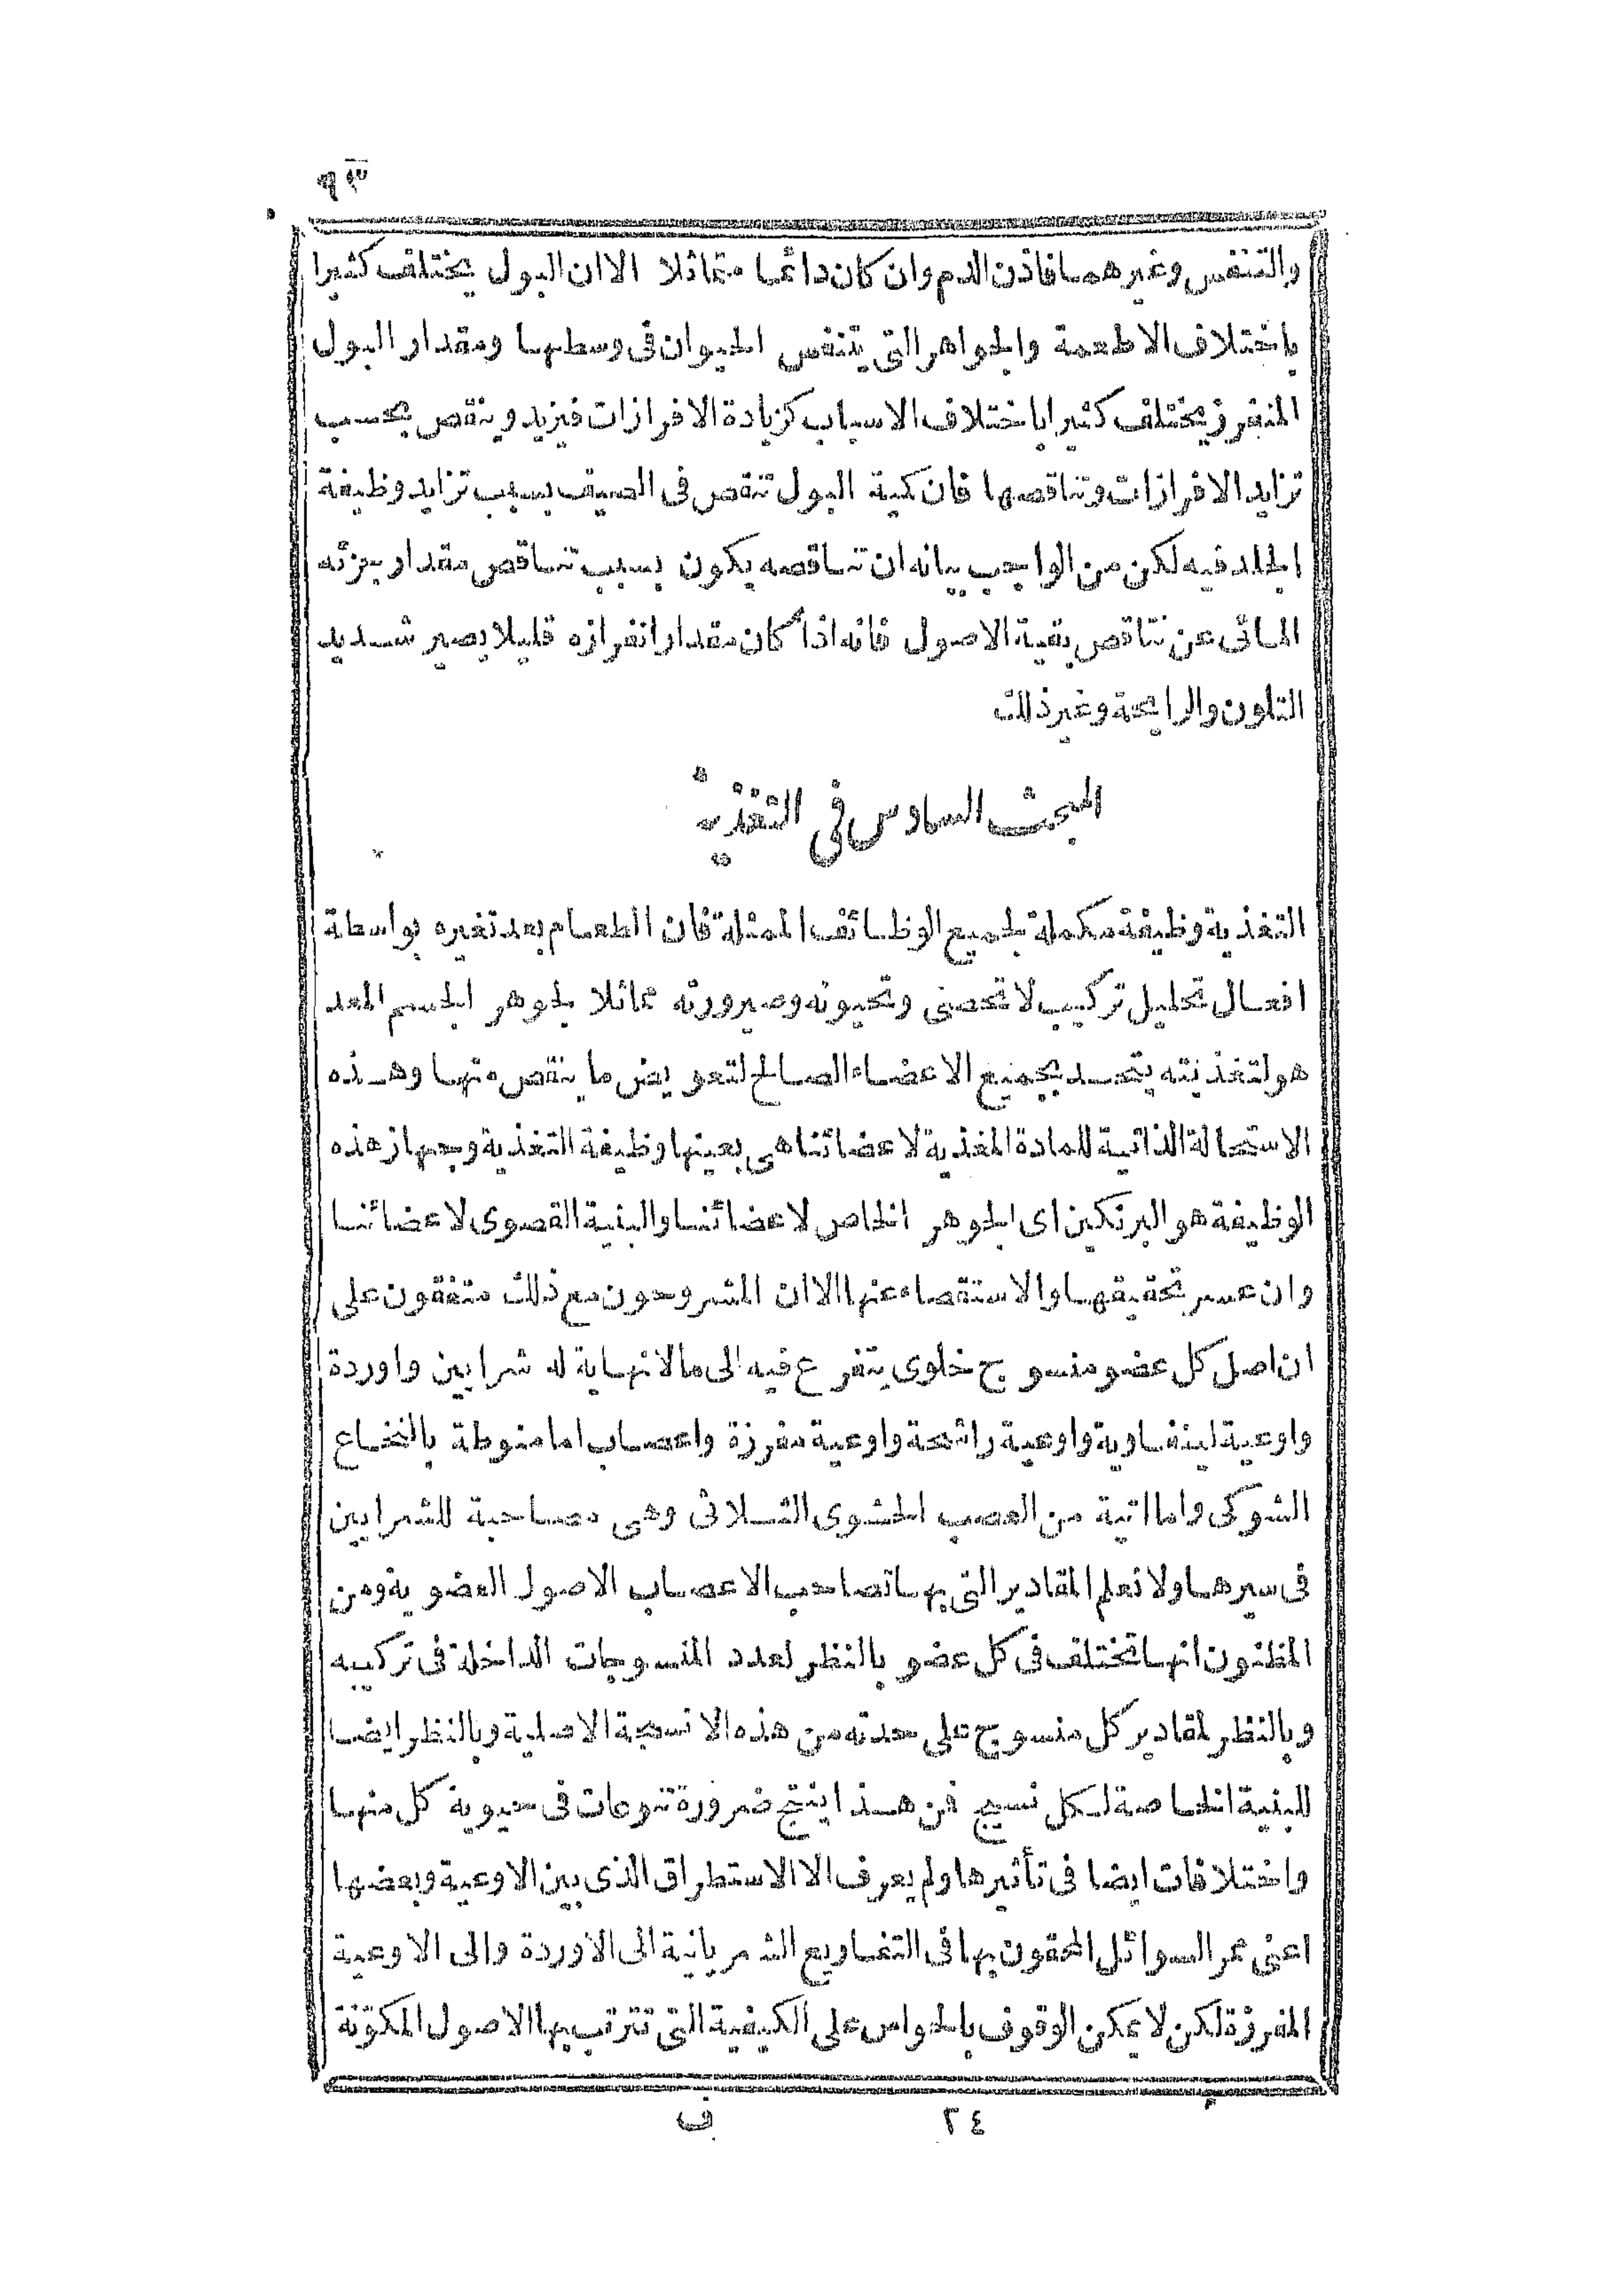 ٩٣
والتنفس وغيرهما فاذن الدم وان كان دائما متماثلا الا ان البول يختلف كثيرا
باختلاف الاطعمة والجواهر التى يتنفس الحيوان فى وسطها ومقدار البول
المنفرز يختلف كثيرا باختلاف الاسباب كزيادة الافرازات فيزيد وينقص بحسب
تزايد الافرازات وتناقصها فان كمية البول تنقص فى الصيف بسبب تزايد وظيفة
الجلد فيه لكن من الواجب بيانه ان تناقصه يكون بسبب تناقص مقدار جزئه
المائى عن تناقص بقية الاصول فانه اذا كان مقدار انفرازه قليلا يصير شديد
التلون والرايحة وغير ذلك
المبحث السادس فى التغذية
التغذية وظيفة مكملة لجميع الوظائف الممثلة فان الطعام بعد تغيره بواسطة
افعال تحليل تركيب لا تحصى وتحيونه وصيرورته مماثلا لجوهر الجسم المعد
هو لتغذيته يتحد بجميع الاعضاء الصالح لتعويض ما ينقص منها وهذه
الاستحالة الذاتية للمادة المغذية لاعضائنا هى بعينها وظيفة التغذية وجهاز هذه
الوظيفة هو البرنكين اى الجوهر الخاص لاعضائنا والبنية القصوى لاعضائنا
وان عسر تحقيقها والاستقصاء عنها الا ان المشروحون مع ذلك متفقون على
ان اصل كل عضو منسوج خلوى يتفرع فيه الى مالانهاية له شرايين واوردة
واوعية لينفاوية واوعية راشحة واوعية مفرزة واعصاب اما منوطة بالنخاع
الشوكى واما اتية من العصب الحشوى الثلاثى وهى مصاحبة للشرايين
فى سيرها ولا نعلم المقادير التى بها تصاحب الاعصاب الاصول العضوية ومن
المظنون انها تختلف فى كل عضو بالنظر لعدد المنسوجات الداخلة فى تركيبه
وبالنظر لمقادير كل منسوج على حدته من هذه الانسجة الاصلية وبالنظر ايضا
للبنية الخاصة لكل نسيج فمن هذا ينتج ضرورة تنوعات فى حيوية كل منها
واختلافات ايضا فى تأثيرها ولم يعرف الا الاستطراق الذى بين الاوعية وبعضها
اعنى ممر السوائل المحقون بها فى التفاويع الشريانية الى الاوردة والى الاوعية
المفرزة لكن لا يمكن الوقوف بالحواس على الكيفية التى تترتب بها الاصول المكونة
٢٤ ف